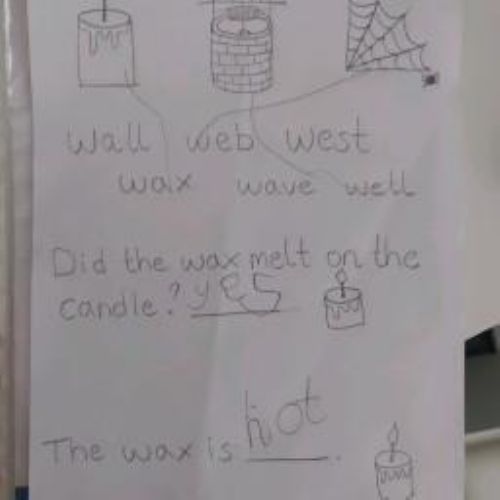 wall web west
wax wave well
Did the wax melt on the
candle? yes
The wax is hot.